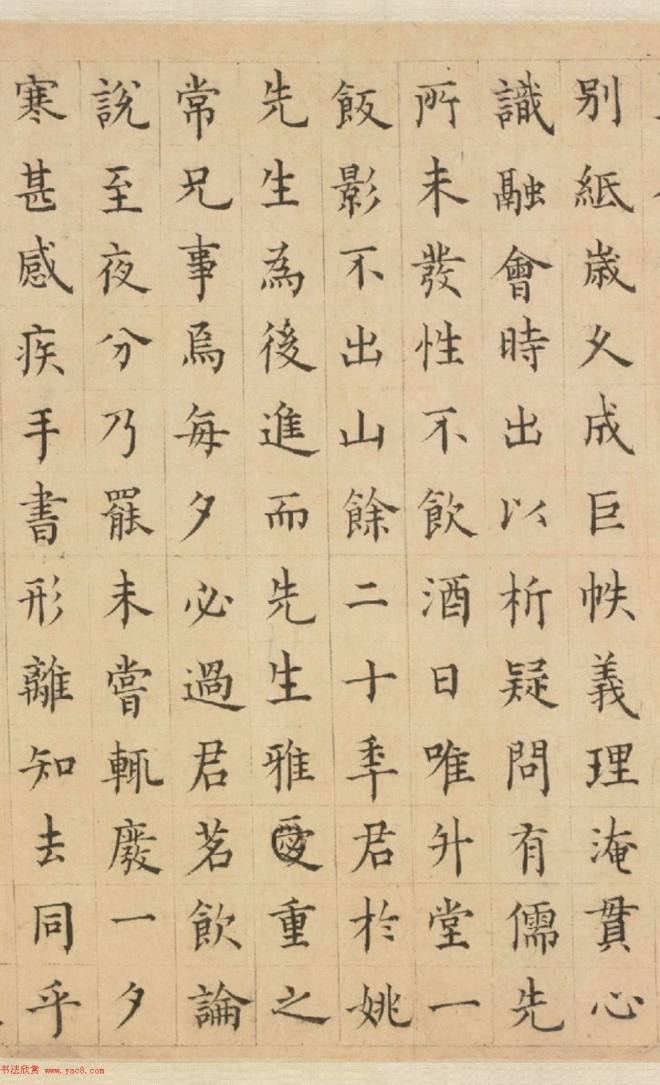 别紙歳久成巨帙義理淹貫心
識融會時出以析疑問有儒先
所未發性不飲酒日唯升堂一
飯影不出山餘二十秊君於姚
先生為後進而先生雅愛重之
常兄事焉每夕必過君茗飲論
說至夜分乃罷未嘗輒廢一夕
寒甚感疾手書形離知去同乎
书法欣赏 www.yac8.com